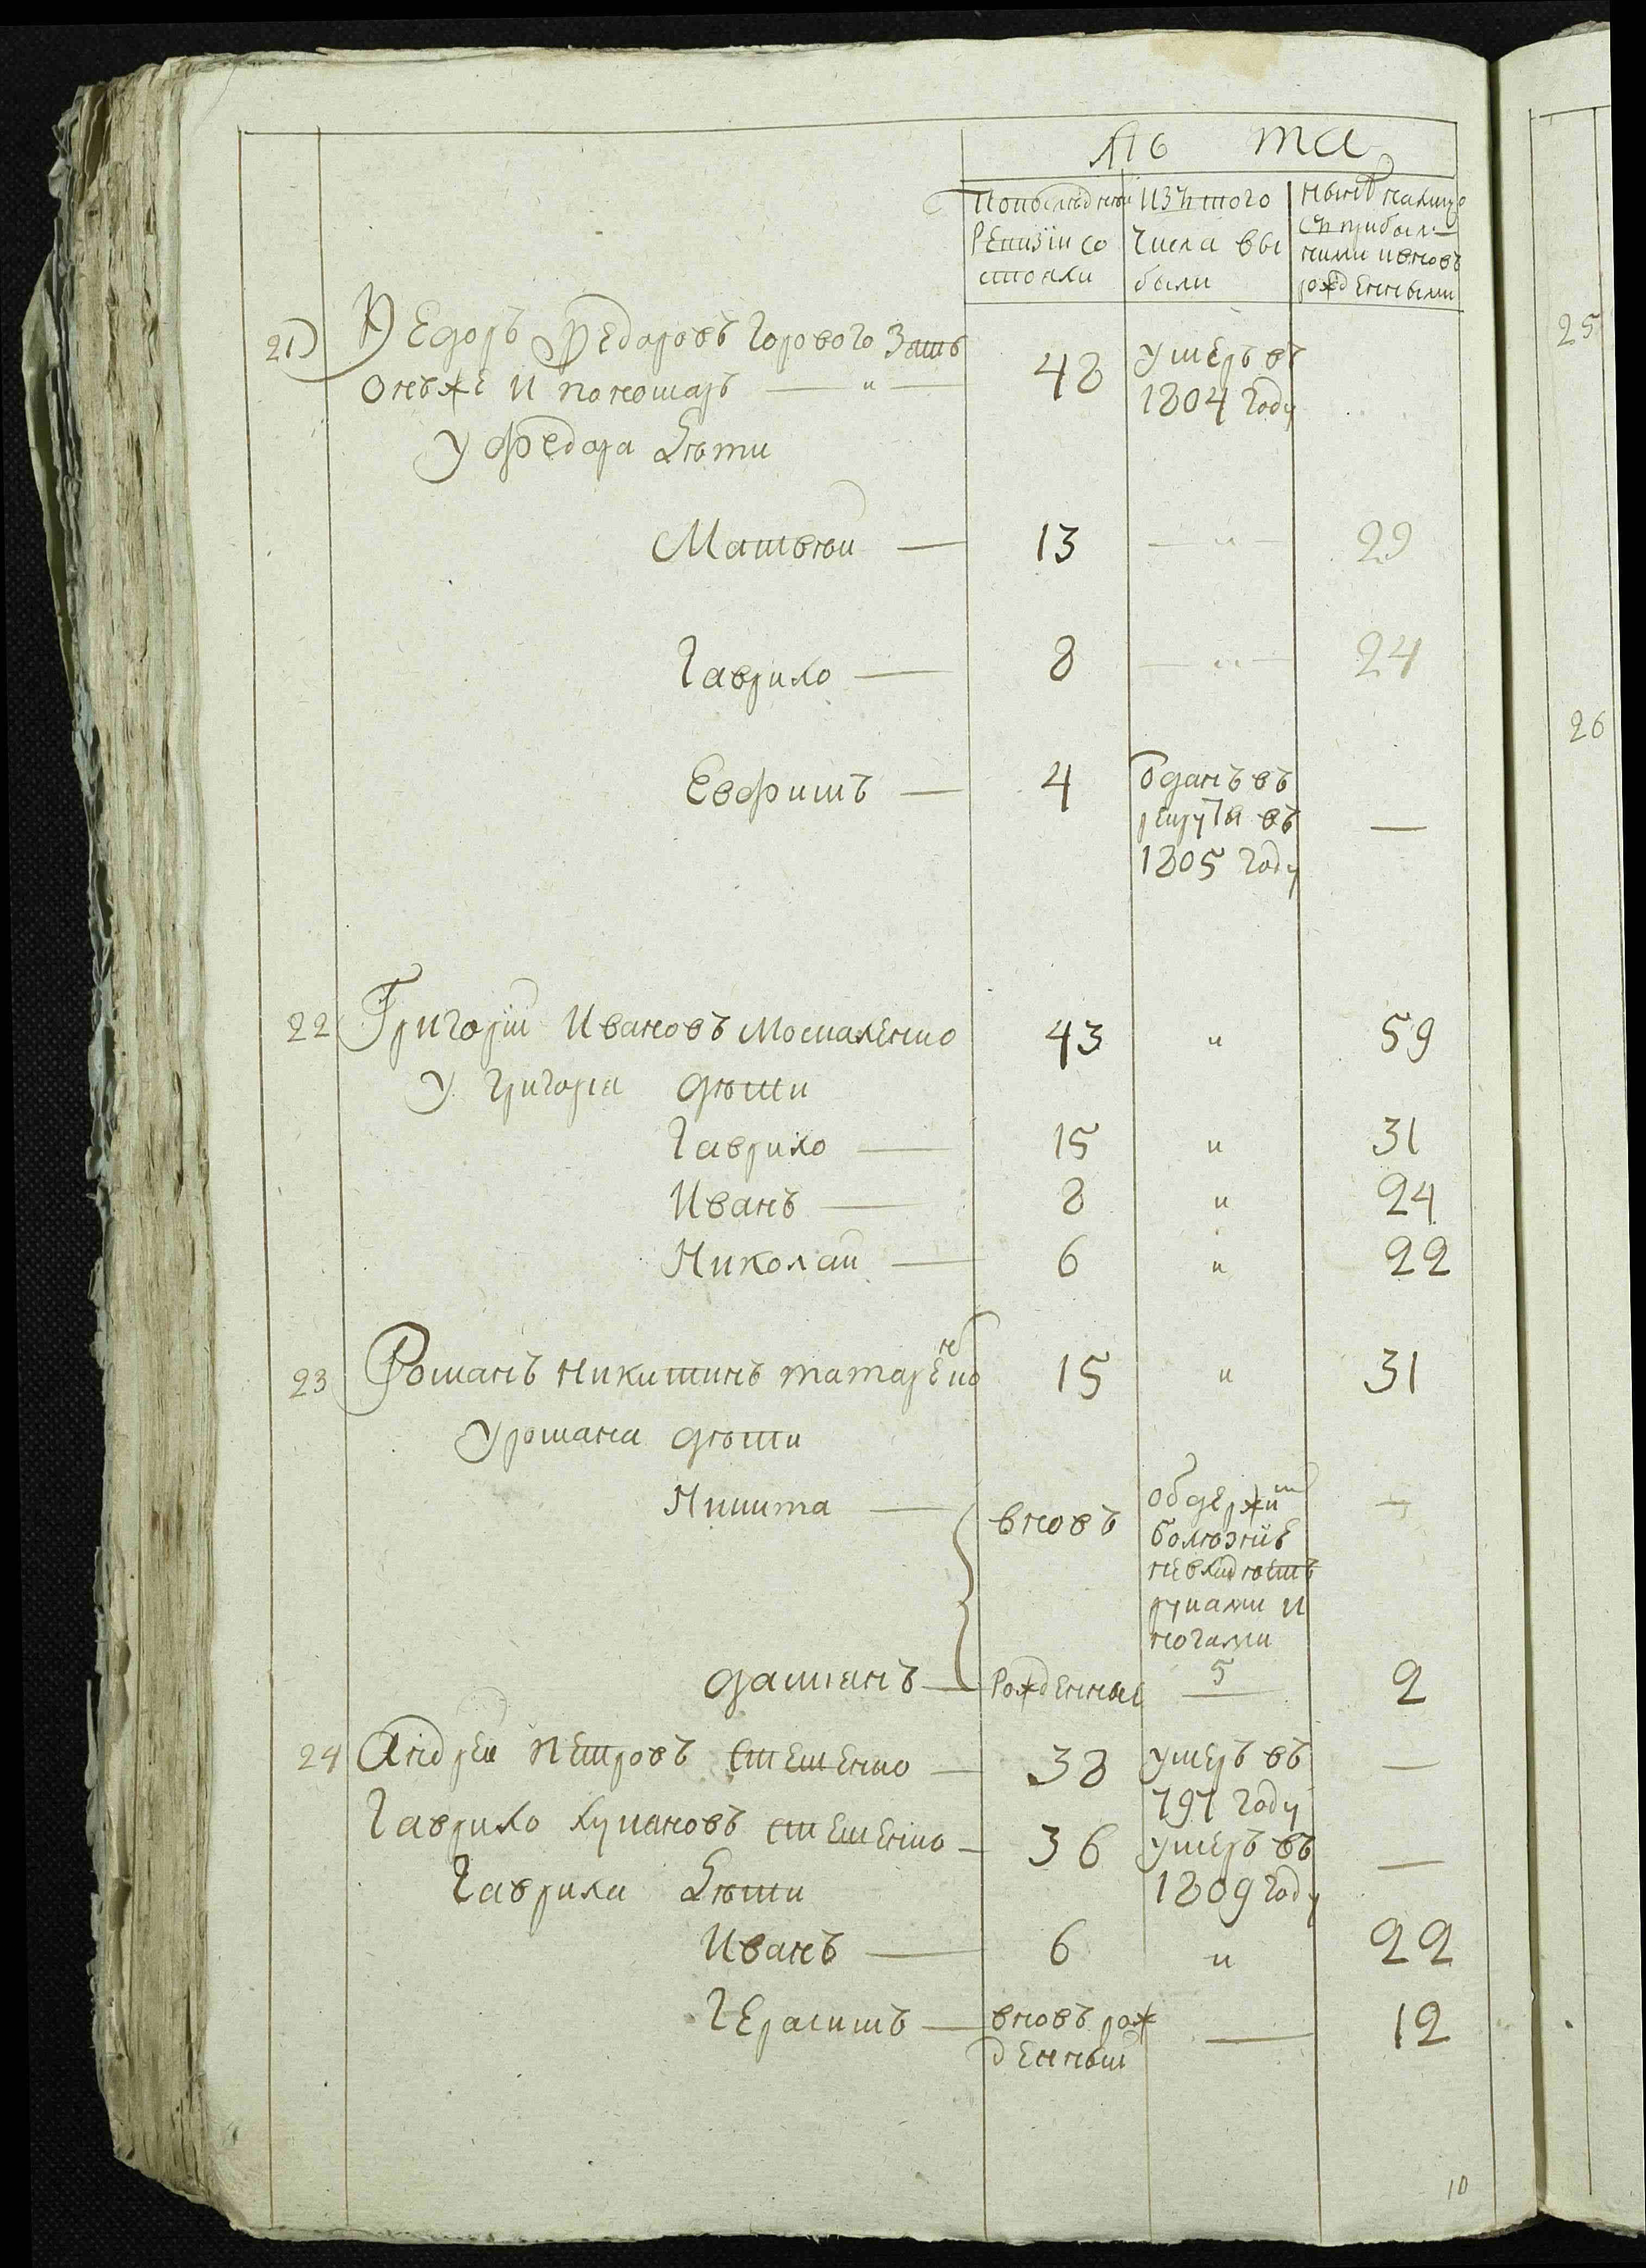 Лѣ та
Попоследней Изъ того Нынѣ налицо
Ревизіи со числа вы съ прибыл-
стояли были ными и вновь
рожденными
21) Федоръ Федоровъ Горового Зять 48 умеръ въ
онъ же и Кономаръ — " — 1804 году
У Федора дѣти
Матвѣй — 13 — " — 29
Гаврило — 8 — " — 24
Евфимъ — 4 отданъ въ
рекруты въ —
1805 году
22 Григорій Ивановъ Москаленко 43 " 59
У Григорія дѣти
Гаврило — 15 " 31
Иванъ — 8 " 24
Николай — 6 " 22
23 Романъ Никитинъ татаренко 15 " 31
У романа дѣти
Никита — вновь обдержим —
болѣзніе
невладѣетъ
руками и
ногами
5
дамианъ — Рожденные — 2
24 Андрей Петровъ Стеценко — 38 умеръ въ —
797 году
Гаврило Лукановъ стеценко — 36 умеръ въ —
1809 году
Гаврила дѣти
Иванъ — 6 " 22
Герасимъ — вновь рож — 12
денный
10
25
26